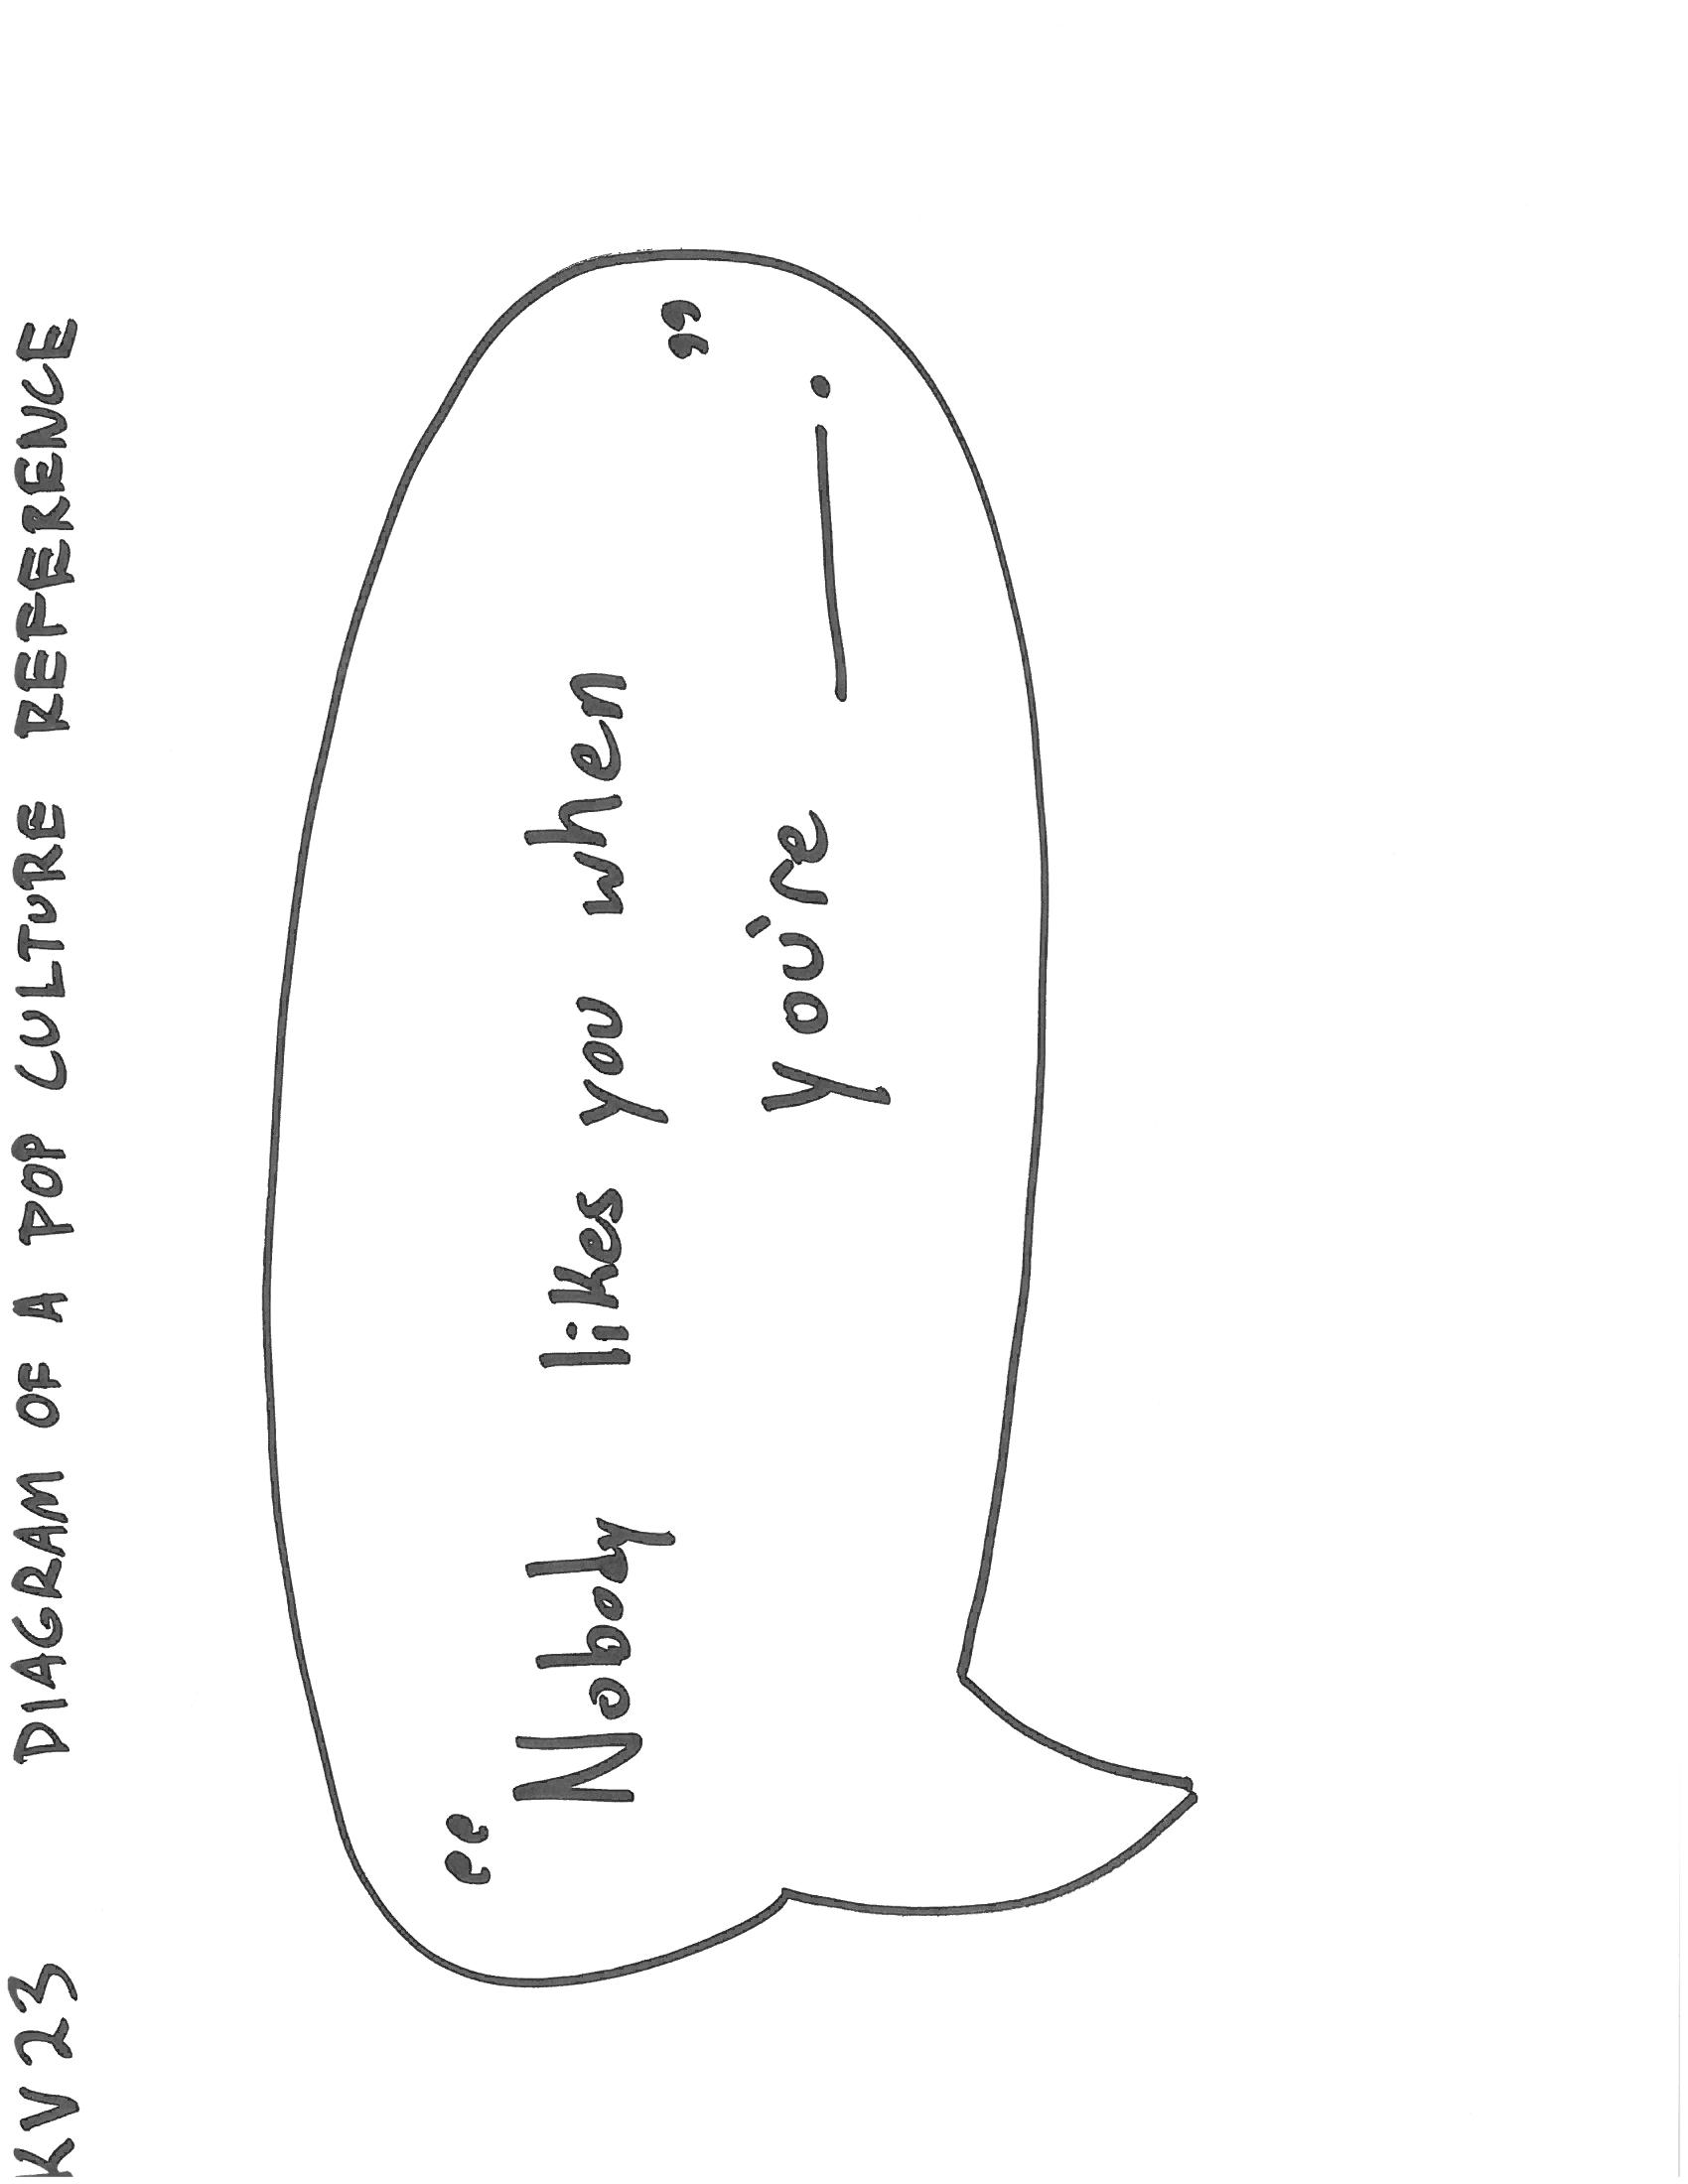 KV23 DIAGRAM OF A POP CULTURE REFERENCE
“Nobody likes you when
you're ___.”